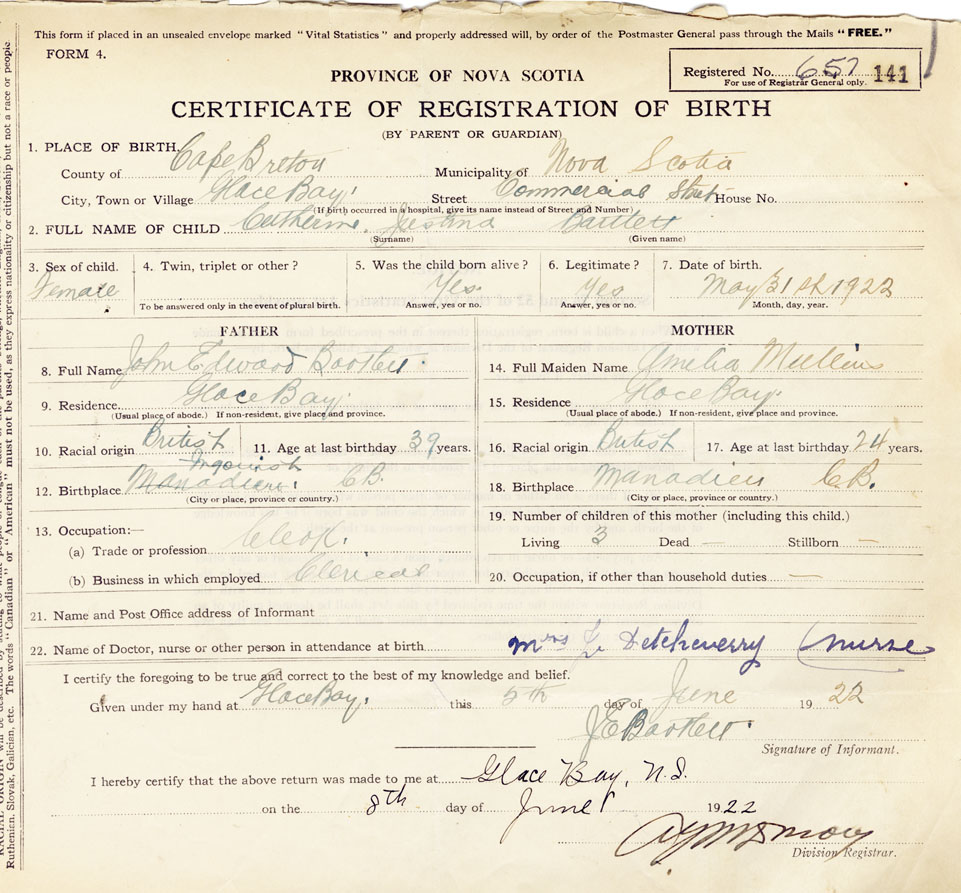 This form if placed in an unsealed envelope marked "Vital Statistics" and properly addressed will, by order of the Postmaster General pass through the Mails "FREE."
FORM 4.
Registered No. 657 141
For use of Registrar General only.
PROVINCE OF NOVA SCOTIA
CERTIFICATE OF REGISTRATION OF BIRTH
(BY PARENT OR GUARDIAN)
1. PLACE OF BIRTH,
County of Cape Breton Municipality of Nova Scotia
City, Town or Village Glace Bay Street Commercial Street House No.
(If birth occurred in a hospital, give its name instead of Street and Number)
2. FULL NAME OF CHILD Catherine Bartlett
(Surname) (Given name)
3. Sex of child. 4. Twin, triplet or other? 5. Was the child born alive? 6. Legitimate? 7. Date of birth.
Female Yes. Yes May 31st 1922
To be answered only in the event of plural birth. Answer, yes or no. Answer, yes or no. Month, day, year.
FATHER MOTHER
8. Full Name John Edward Bartlett 14. Full Maiden Name Amelia Mullins
9. Residence Glace Bay. 15. Residence Glace Bay.
(Usual place of abode.) If non-resident, give place and province. (Usual place of abode.) If non-resident, give place and province.
10. Racial origin British 11. Age at last birthday 39 years. 16. Racial origin British 17. Age at last birthday 24 years.
Ingonish
12. Birthplace Manadieu C.B. 18. Birthplace Manadieu C.B.
(City or place, province or country.) (City or place, province or country.)
13. Occupation:— 19. Number of children of this mother (including this child.)
(a) Trade or profession Clerk. Living 3 Dead — Stillborn —
(b) Business in which employed Clerical 20. Occupation, if other than household duties —
21. Name and Post Office address of Informant
22. Name of Doctor, nurse or other person in attendance at birth Mrs Detcheverry (nurse
I certify the foregoing to be true and correct to the best of my knowledge and belief.
Given under my hand at Glace Bay. this 5th day of June 19 22
J E Bartlett
Signature of Informant.
I hereby certify that the above return was made to me at Glace Bay, N.S.
on the 8th day of June 1922
Division Registrar.
RACIAL ORIGIN will be described by stating to what people
Ruthenian, Slovak, Galician, etc. The words "Canadian" or "American" must not be used, as they express nationality or citizenship but not a race or people